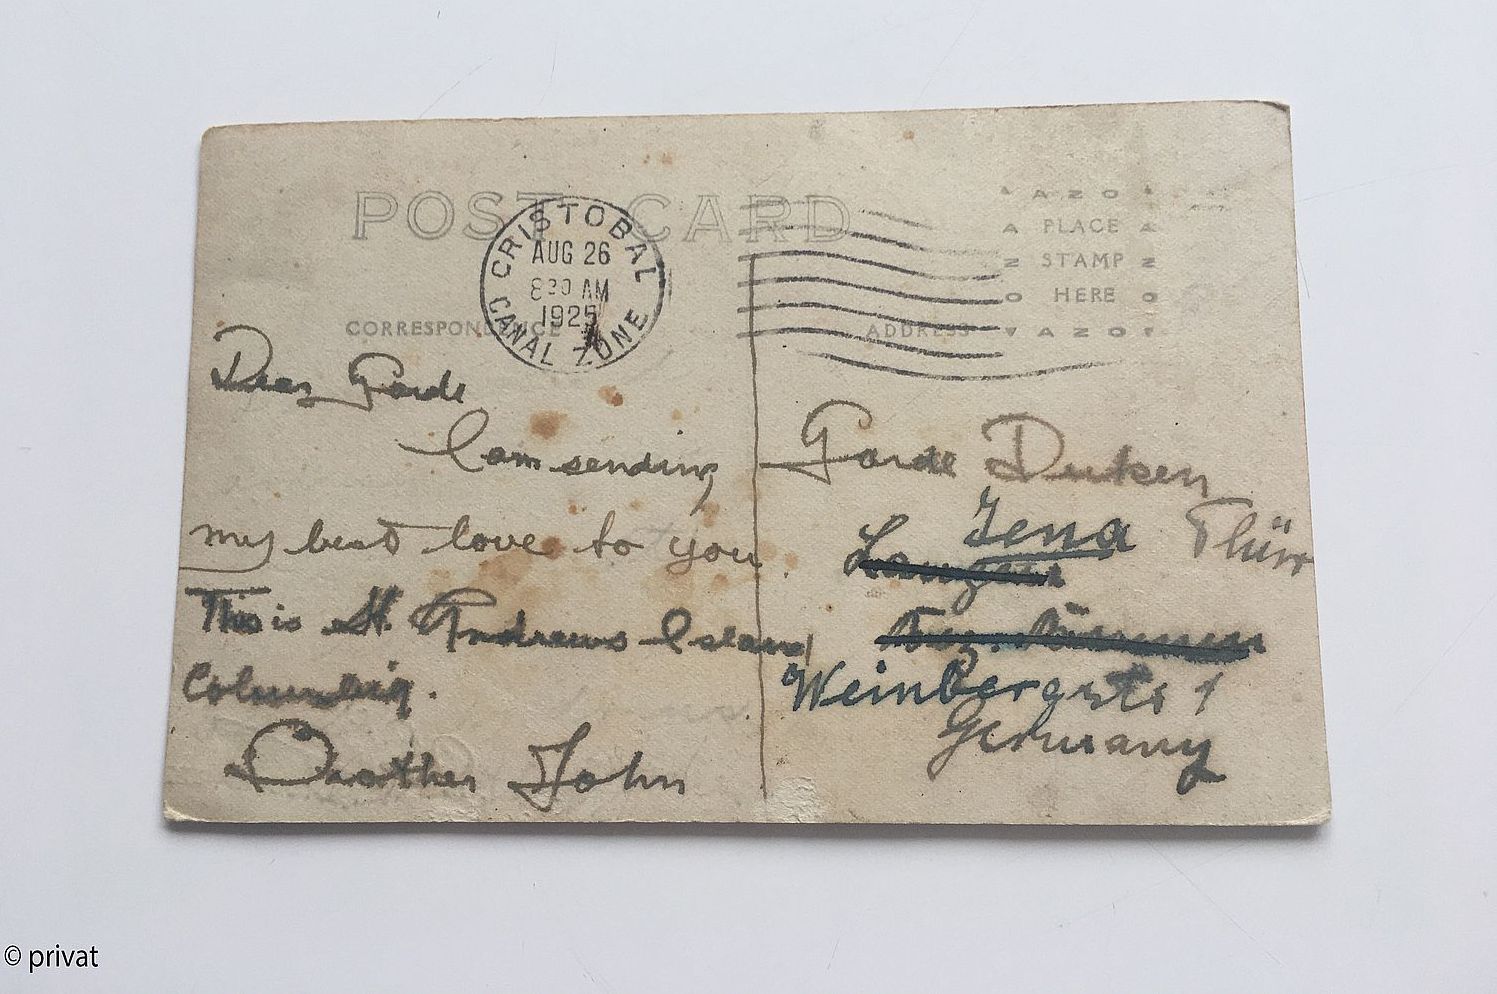 POST CARD
CRISTOBAL
AUG 26
8 30 AM
1925
CANAL ZONE
AZO
PLACE
STAMP
HERE
AZO
CORRESPONDENCE
ADDRESS
Dear Garde
I am sending
my best love to you.
This is St. Andrews Island
Columbia.
Brother John
Garde Dutken
Jena Thür
Langen
Weinbergstr 1
Germany
© privat